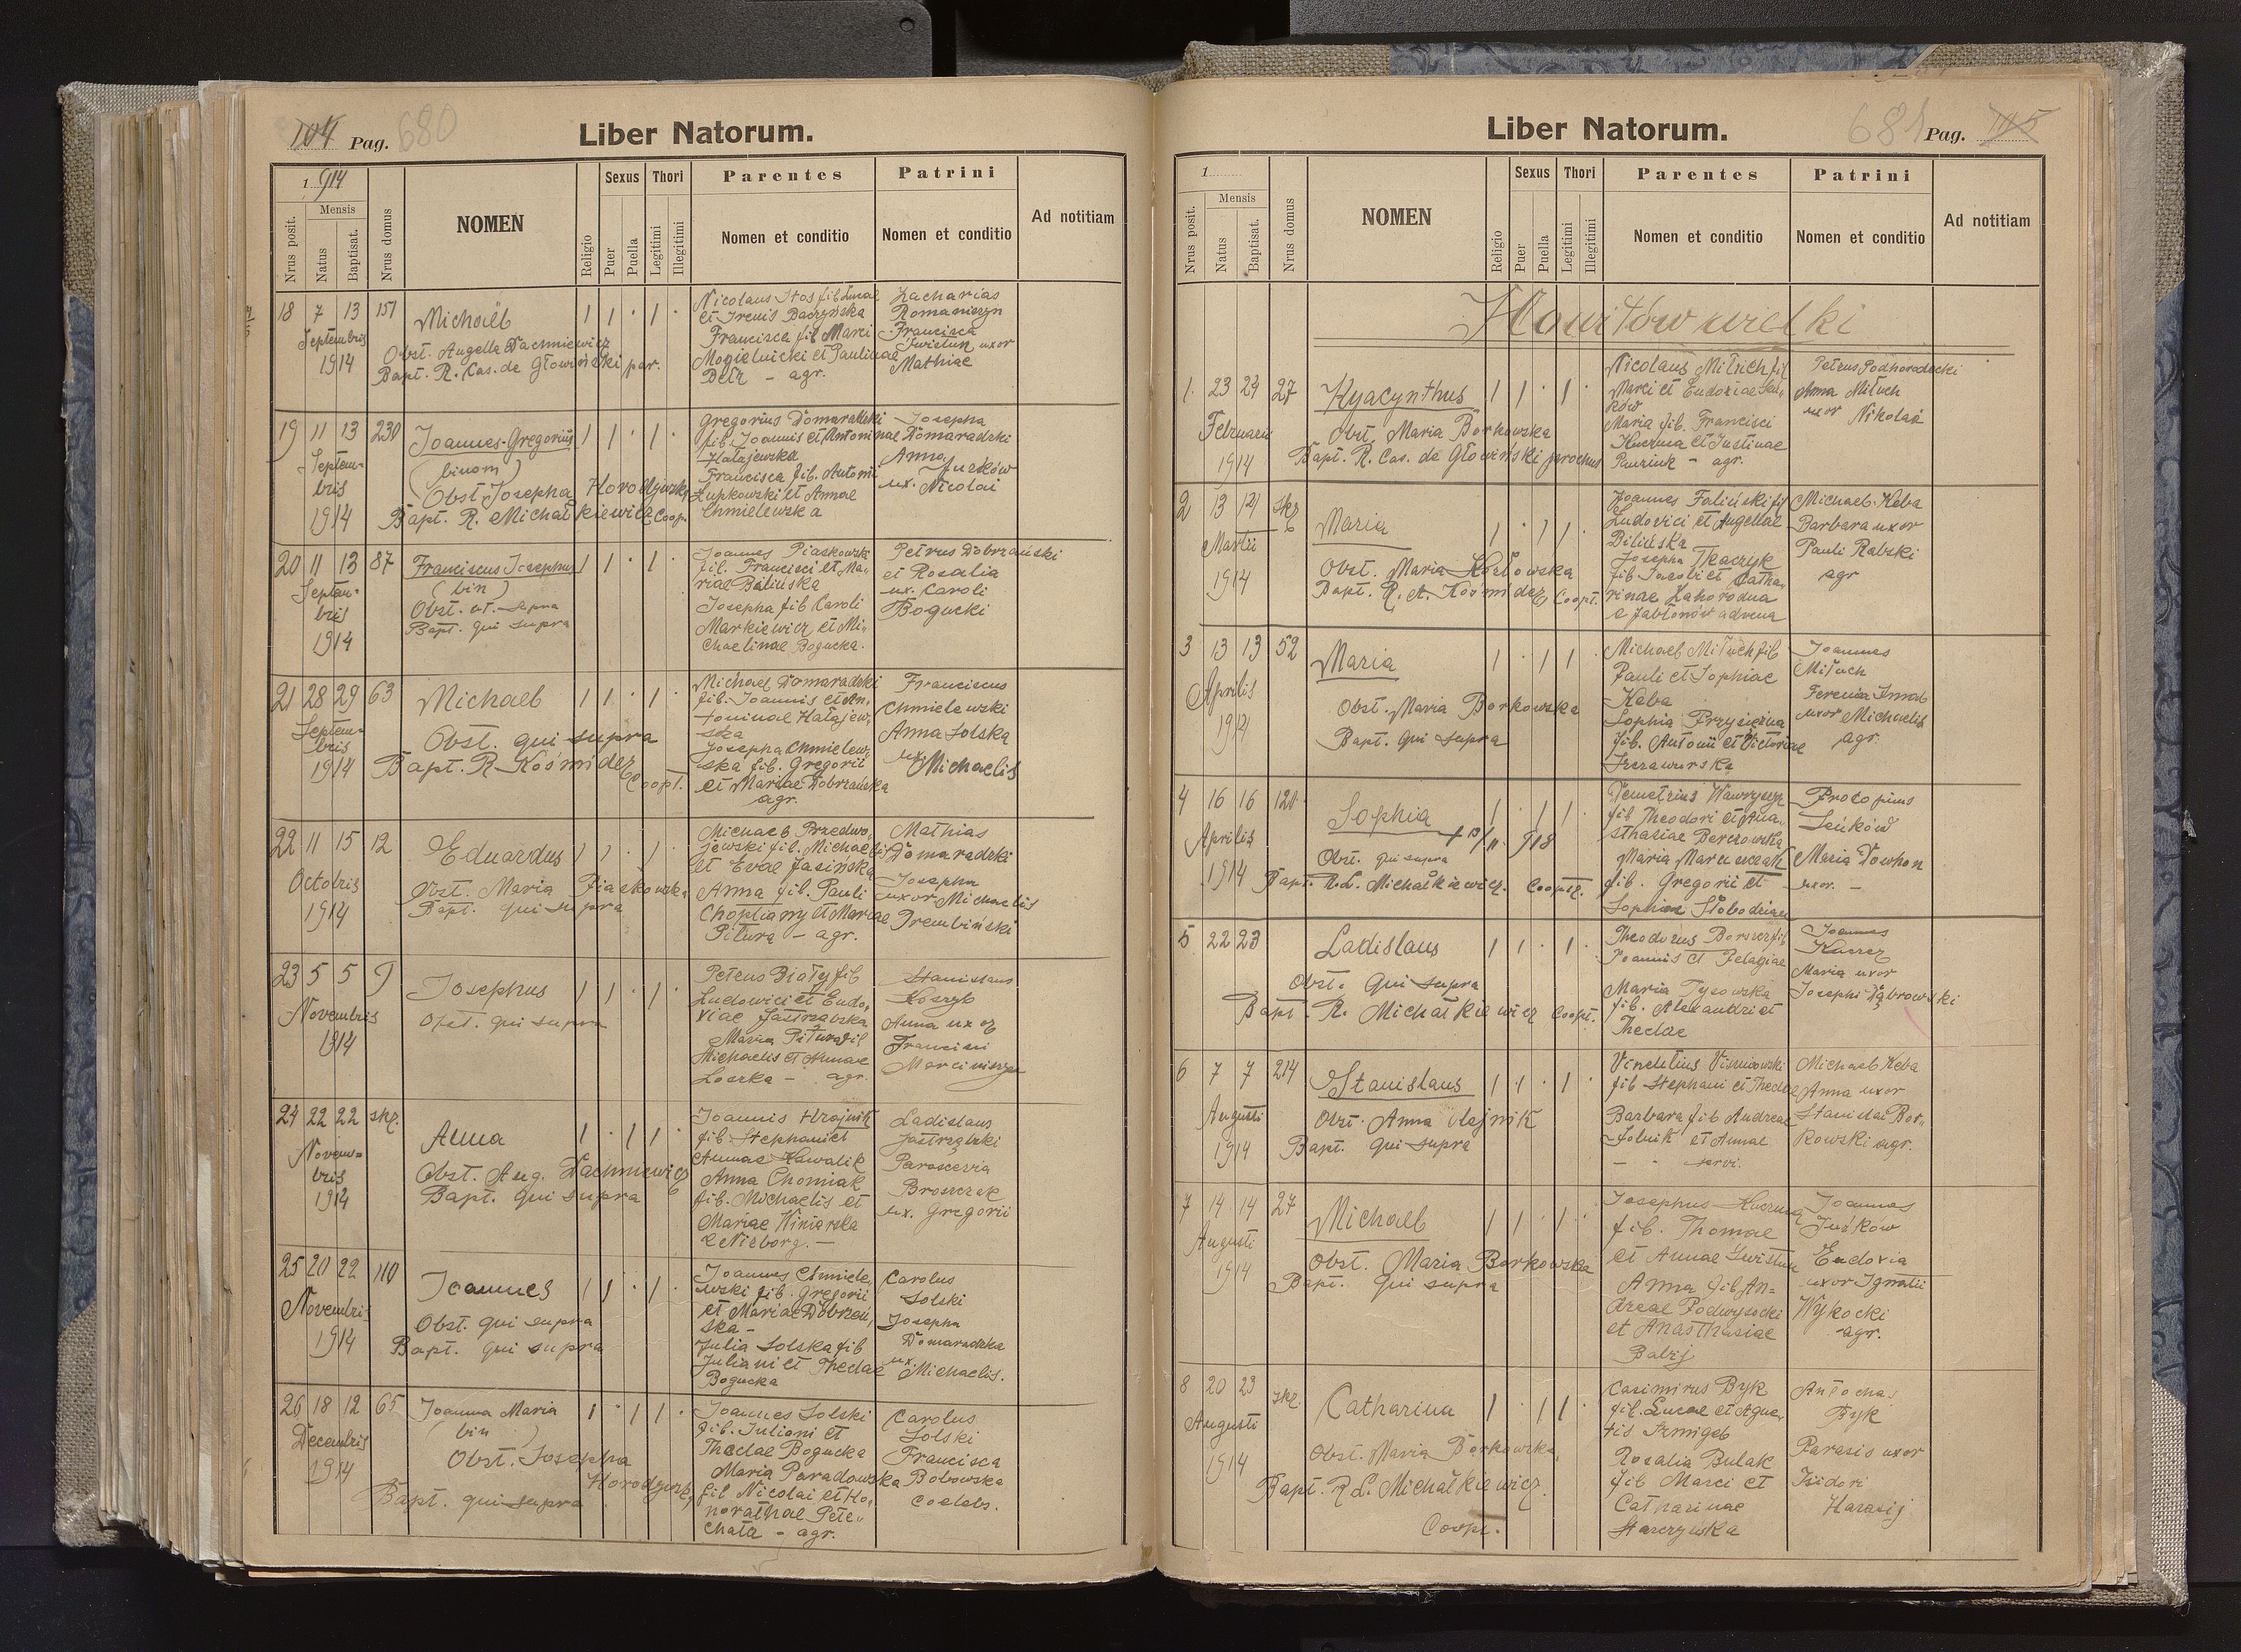 104 Pag. 680
Liber Natorum.
1 914
Nrus posit.
Mensis
Natus
Baptisat.
Nrus domus
NOMEN
Religio
Sexus
Puer
Puella
Thori
Legitimi
Illegitimi
Parentes
Nomen et conditio
Patrini
Nomen et conditio
Ad notitiam
18 7 13 151 Michaël 1 1 · 1 ·
Septembris
1914
Obst. Angella Dachniewicz
Bapt. R. Cas. de Głowiński par.
Nicolaus Stos fil. Lucae
et Irenis Baczyńska
Francisca fil. Marci
Mogielnicki et Paulinae
agr.
Zacharias
Romaniszyn
Francisca
Świstun uxor
Mathiae
19 11 13 230 Joannes-Gregorius 1 1 · 1 ·
(binom)
Septem-
bris
1914
Obst. Josepha Horodyńska
Bapt. R. Michałkiewicz Coop.
Gregorius Domaradzki
fil. Joannis et Antoninae
Hałajewska
Francisca fil. Antoni
Łupkowski et Annae
Chmielewska
Josepha
Domaradzki
Anna
Juzków
ux. Nicolai
20 11 13 87 Franciscus Josephus 1 1 · 1 ·
(bin)
Septem-
bris
1914
Obst. ut. supra
Bapt. qui supra
Joannes Piaskowski
fil. Francisci et Ma-
riae Bilińska
Josepha fil Caroli
Markiewicz et Mi-
chaelinae Bogucka.
Petrus Dobrzański
et Rosalia
ux. Caroli
Bogucki
21 28 29 63 Michael 1 1 · 1 ·
Septem-
bris
1914
Obst. qui supra
Bapt. R. Kośmider
Coopt.
Michael Domaradzki
fil. Joannis et An-
toninae Hałajew-
ska
Josepha Chmielew-
ska fil. Gregorii
et Mariae Dobrzańska
agr.
Franciscus
Chmielewski
Anna Solska
ux. Michaelis
22 11 15 12 Eduardus 1 1 · 1 ·
Octobris
1914
Obst. Maria Piaskowska
Bapt. qui supra
Michael Przedwo-
jewski fil. Michaelis
et Evae Jasińska
Anna fil. Pauli
Choptiany et Mariae
Pitura - agr.
Mathias
Domaradzki
Josepha
uxor Michaelis
Trembiński
23 5 5 9 Josephus 1 1 · 1 ·
Novembris
1914
Obst. qui supra
Petrus Biały fil
Ludovici et Eudo-
xiae Jastrzabska
Maria Pitura fil
Michaelis et Annae
Loszka - agr.
Stanislaus
Koszyl
Anna uxor
Francisci
Marciniszyn
24 22 22 skr. Anna 1 · 1 1 ·
Novem-
bris
1914
Obst. Aug. Dachniewicz
Bapt. qui supra
Joannis Hrajnik
fil. Stephani et
Annae Kowalik
Anna Choniak
fil. Michaelis et
Mariae Winiarska
e Niżborg. -
Ladislaus
Jastrząbski
Parascevia
Broszczak
ux. Gregorii
25 20 22 110 Joannes 1 1 · 1 ·
Novembris
1914
Obst. qui supra
Bapt. qui supra
Joannes Chmiele-
wski fil. Gregorii
et Mariae Dobrzań-
ska -
Julia Solska fil
Juliani et Theclae
Bogucka
Carolus
Solski
Josepha
Domaradzka
ux. Michaelis.
26 18 12 65 Joanna Maria 1 · 1 1 ·
(bin)
Decembris
1914
Obst. Josepha
Horodyńska
Bapt. qui supra
Joannes Solski
fil. Juliani et
Theclae Bogucka
Maria Paradowska
fil Nicolai et Ho-
norathae Pete-
chata - agr.
Carolus
Solski
Francisca
Bobowska
coelebs.
681 Pag. 105
Liber Natorum.
1
Nrus posit.
Mensis
Natus
Baptisat.
Nrus domus
NOMEN
Religio
Sexus
Puer
Puella
Thori
Legitimi
Illegitimi
Parentes
Nomen et conditio
Patrini
Nomen et conditio
Ad notitiam
Howiłów wielki
1. 23 24 27 Hyacynthus 1 1 · 1 ·
Februarii
1914
Obst. Maria Borkowska
Bapt. R. Cas. de Głowiński parochus
Nicolaus Miłuch fil
Marci et Eudoxiae Sen-
ków
Maria fil. Francisci
Kuczma et Justinae
agr.
Petrus Podhorodecki
Anna Miłuch
uxor Nikolaă
2 13 14 skr Maria 1 · 1 1 ·
Martii
1914
Obst. Maria Kozłowska
Bapt. R. A. Kośmider Coopt.
Joannes Faliński fil
Ludovici et Angellae
Bilińska
Josepha Tkaczyk
fil Jacobi et Catha-
rinae Zahorodna
e Jabłonów advena
Michael Keba
Barbara uxor
Pauli Rabski
agr
3 13 13 52 Maria 1 · 1 1 ·
Aprilis
1914
Obst. Maria Borkowska
Bapt. qui supra
Michael Miłuch fil
Pauli et Sophiae
Keba
Sophia Przysiężna
fil. Antonii et Victoriae
Joannes
Miłuch
uxor Michaelis
agr.
4 16 16 120 Sophia 1 · 1 1 ·
Aprilis
1914
Obst. qui supra
918
Bapt. R. L. Michałkiewicz. Coopt.
Demetrius Wawryszyn
fil Theodori et Ana-
sthasiae Berezowska
Maria Marcinczak
fil. Gregorii et
Sophiae Słobodzian
Procopius
Seńków
Maria Dowhon
uxor. -
5 22 23 Ladislaus 1 1 · 1 ·
Obst. Qui supra
Bapt. R. Michałkiewicz Coopt.
Theodorus Borszcz fil
Joannis et Pelagiae
Maria Tysowska
fil. Alexandri et
Theclae
Joannes
Maria uxor
Josephi Dąbrowski
6 7 7 214 Stanislaus 1 1 · 1 ·
Augusti
1914
Obst. Anna Olejnik
Bapt. qui supra
Vincentius Wiśniowski
fil Stephani et Theclae
Barbara fil Andreae
Solnik et Annae
- - servi.
Michael Keba
Anna uxor
Stanislai Bor-
kowski agr.
7 14 14 27 Michael 1 1 · 1 ·
Augusti
1914
Obst. Maria Borkowska
Bapt. qui supra
Josephus Kuczma
fil. Thomae
et Annae Świstun
Anna fil An-
dreae Podwysocki
et Anasthasiae
Balij
Joannes
Juzkow
Eudoxia
uxor Ignatii
Wykocki
agr.
8 20 23 skr. Catharina 1 · 1 1 ·
Augusti
1914
Obst. Maria Borkowska
Bapt. R. L. Michałkiewicz.
Coopt.
Casimirus Byk
fil. Lucae et Agne-
tis Szmigel
Rosalia Bulak
fil Marci et
Catharinae
Starzyńska
Antochas
Byk
Parasis uxor
Isidori
Harasij